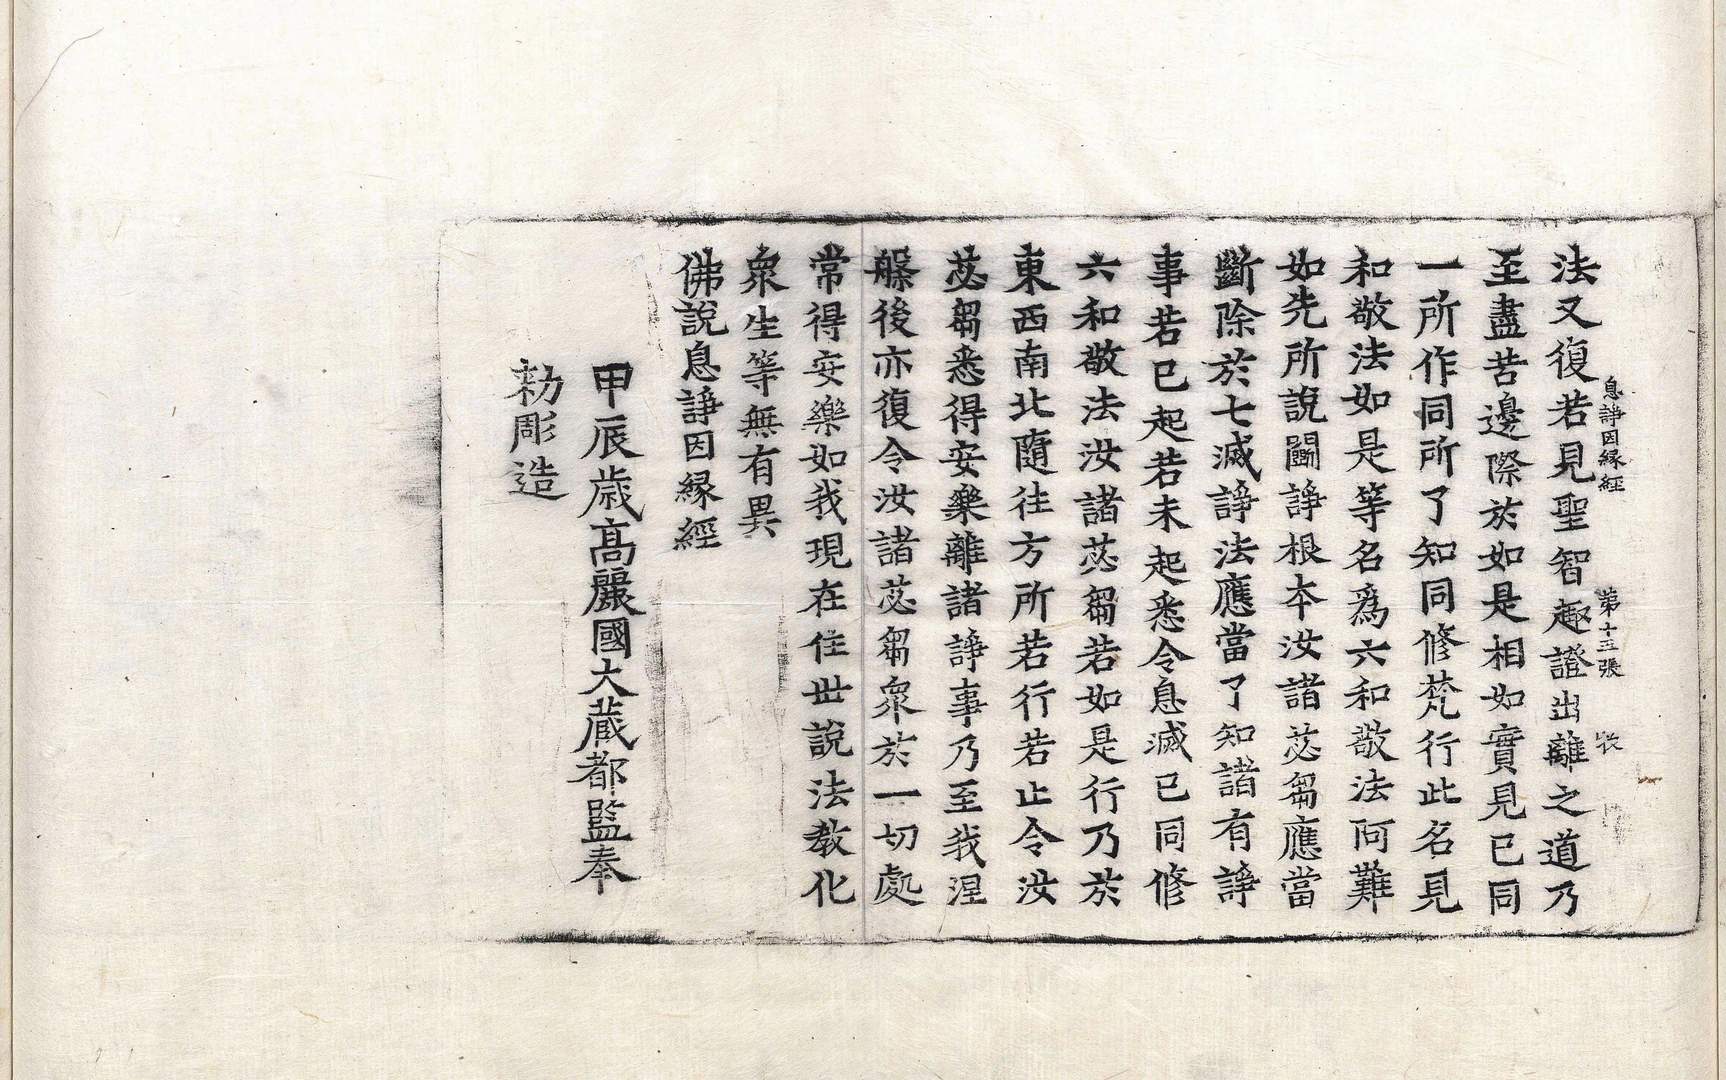 息諍因縁經 第十三張 牧
法又復若見聖智趣證出離之道乃
至盡苦邊際於如是相如實見已同
一所作同所了知同修梵行此名見
和敬法如是等名爲六和敬法阿難
如先所說鬪諍根本汝諸苾芻應當
斷除於七滅諍法應當了知諸有諍
事若已起若未起悉令息滅已同修
六和敬法汝諸苾芻若如是行乃於
東西南北隨往方所若行若止令汝
苾芻悉得安樂離諸諍事乃至我涅
槃後亦復令汝諸苾芻衆於一切處
常得安樂如我現在住世說法教化
衆生等無有異
佛說息諍因縁經
甲辰歳高麗國大藏都監奉
勑彫造